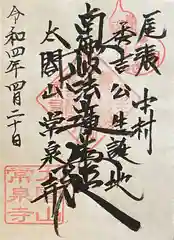 尾張 中村
秀吉公生誕地
南無妙法蓮華経
太閤山 常泉寺
令和四年四月二十日
太閤山
常泉寺